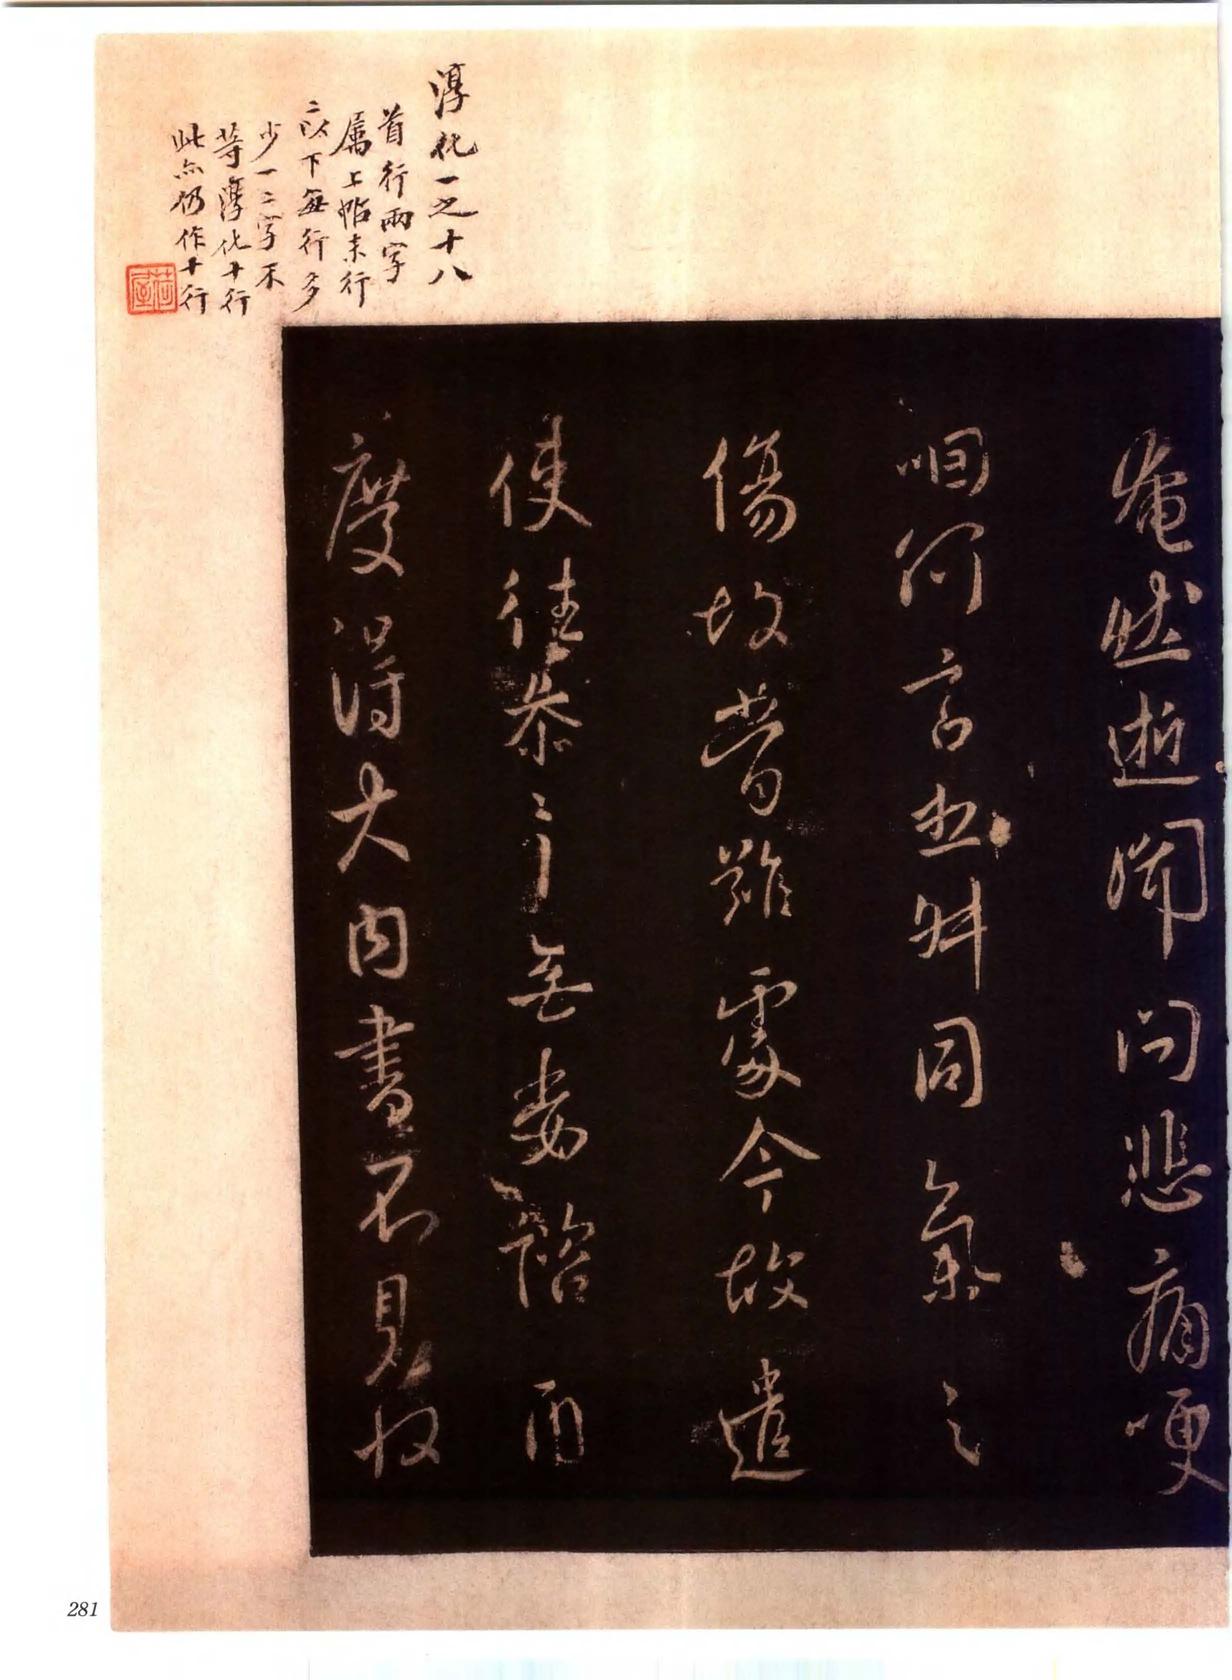 淳化一之十八
首行兩字
屬上帖末行
二以下每行多
少一二字不
等淳化十行
此亦仍作十行
奄然逝聞問悲痛哽
咽何言舛同氣之
傷故昔難處今故遣
使往無委諮兩
度得大内書不見奴
281